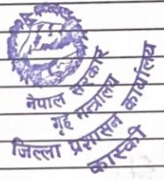 नेपाल सरकार
गृह मन्त्रालय
जिल्ला प्रशासन कार्यालय
कास्की